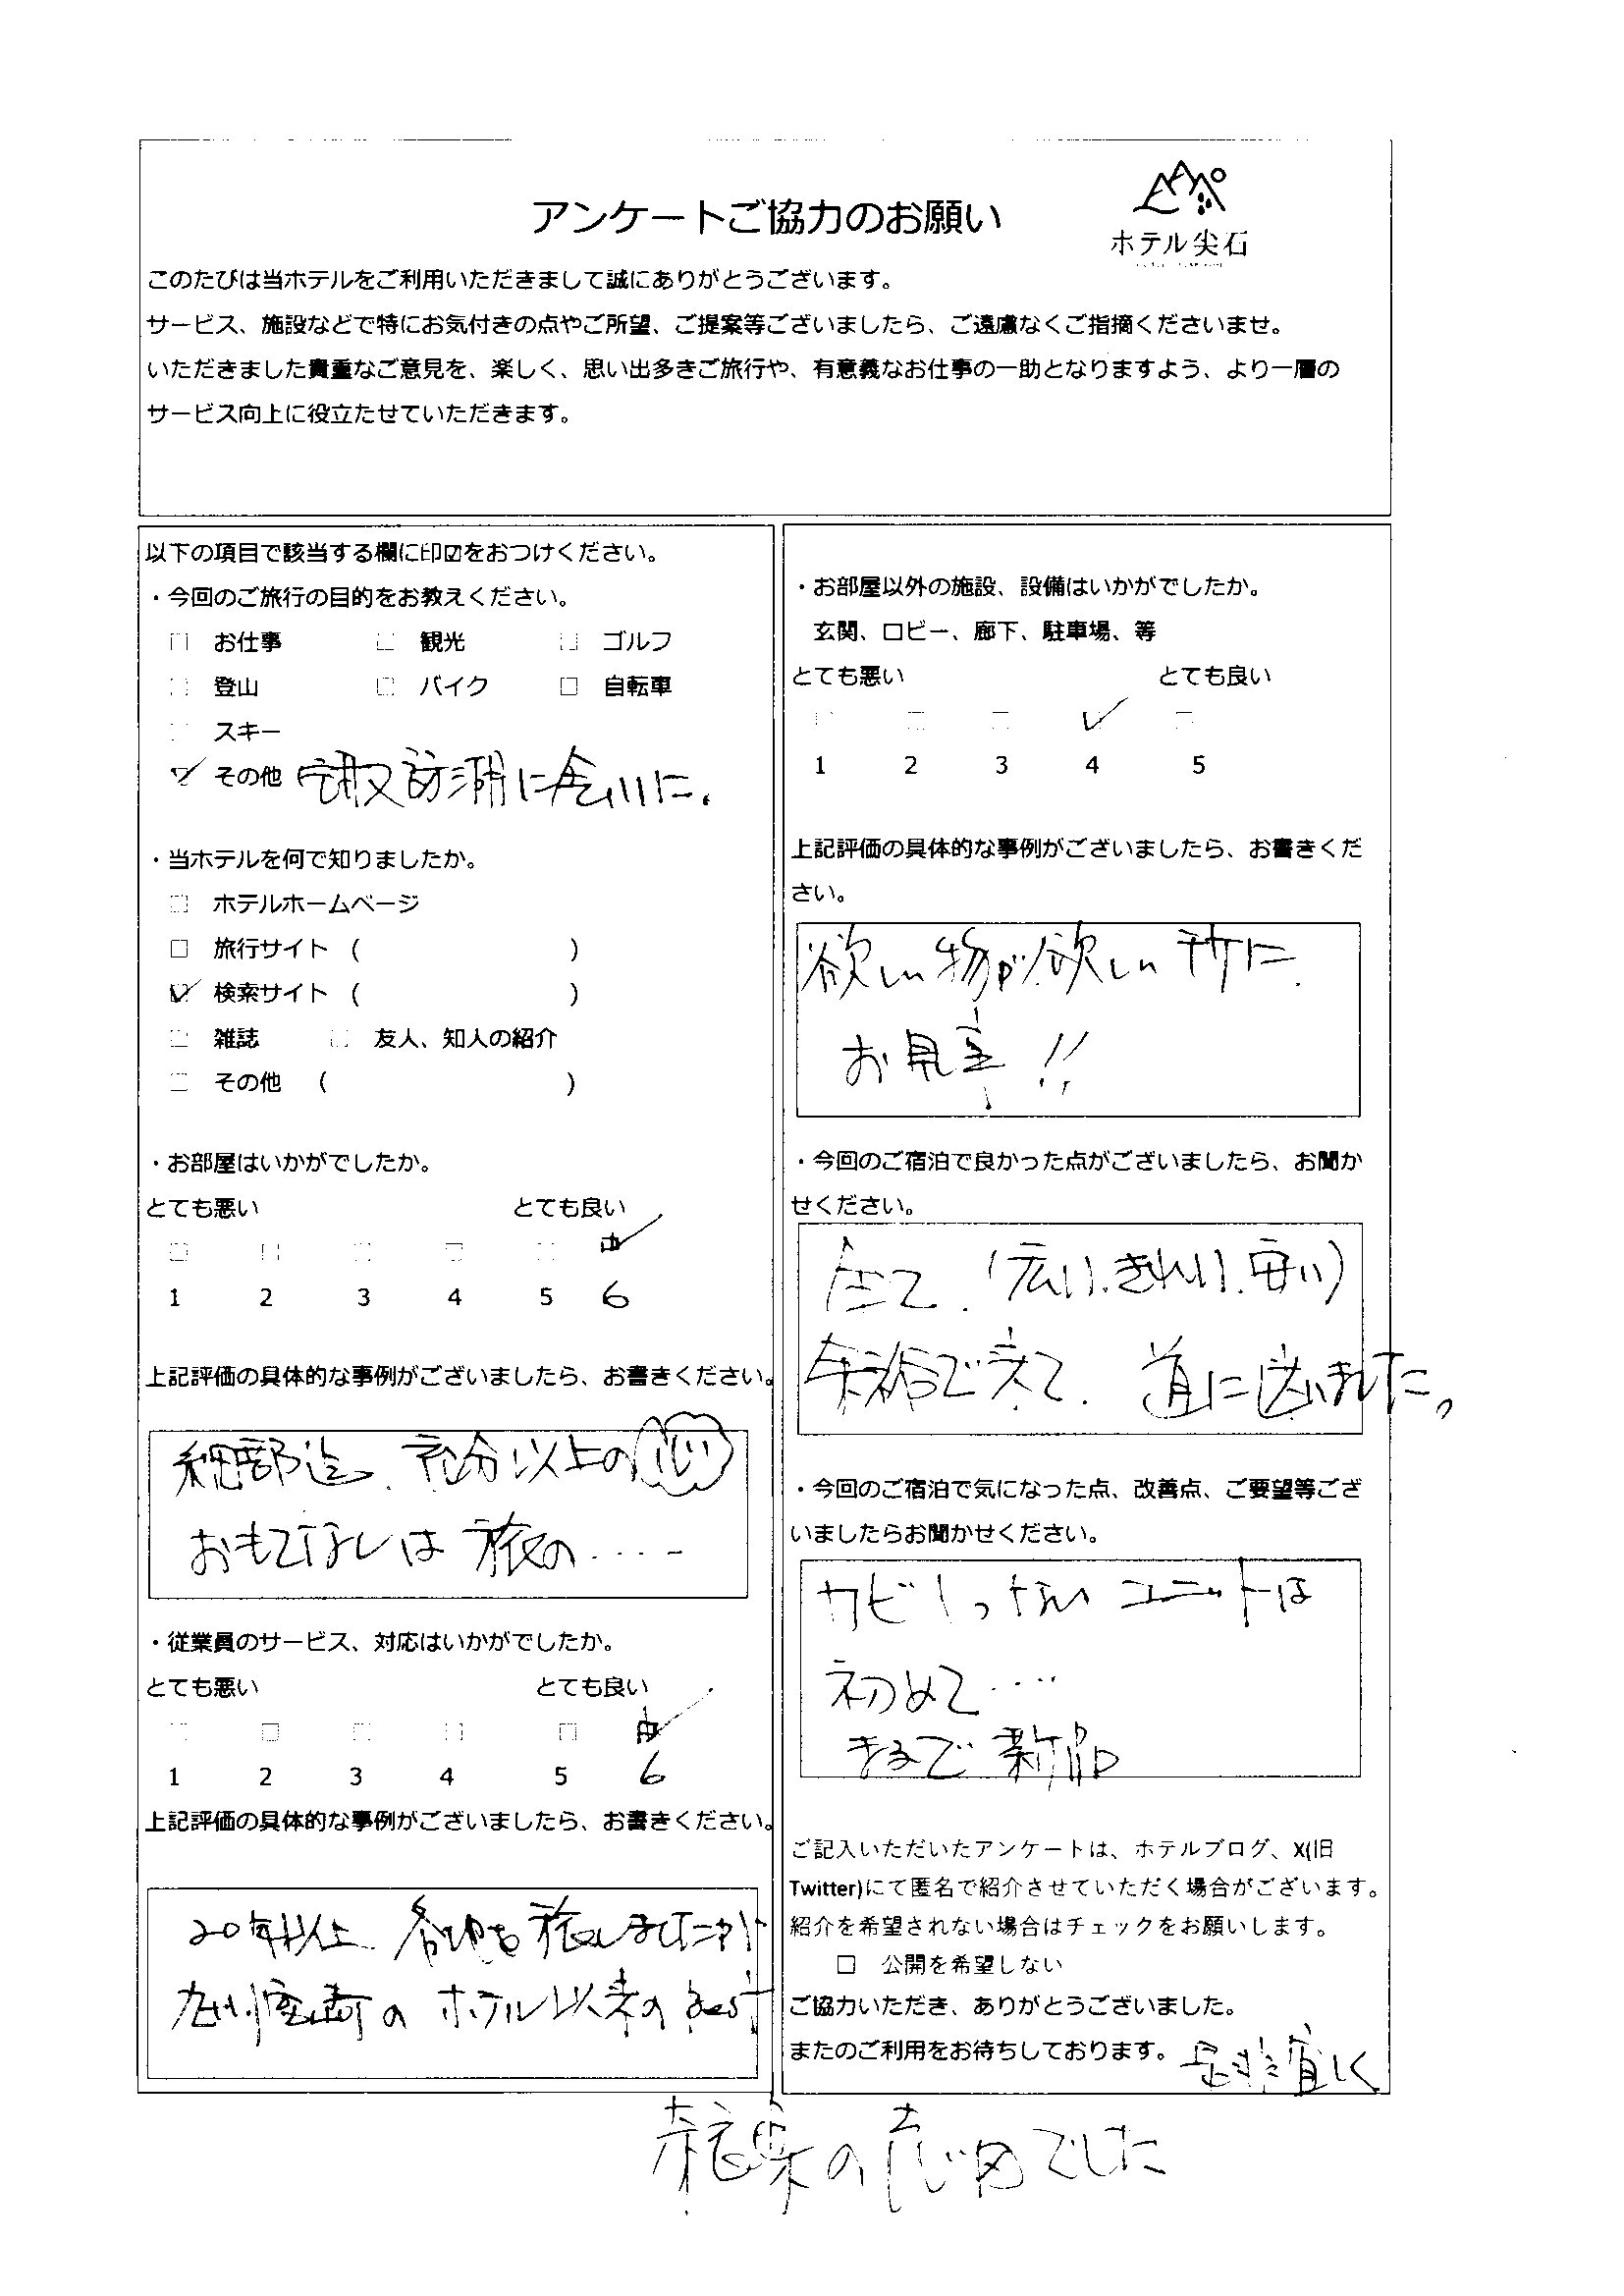 アンケートご協力のお願い
ホテル尖石
このたびは当ホテルをご利用いただきまして誠にありがとうございます。
サービス、施設などで特にお気付きの点やご所望、ご提案等ございましたら、ご遠慮なくご指摘くださいませ。
いただきました貴重なご意見を、楽しく、思い出多きご旅行や、有意義なお仕事の一助となりますよう、より一層の
サービス向上に役立たせていただきます。
以下の項目で該当する欄に印☑をおつけください。
・今回のご旅行の目的をお教えください。
□ お仕事 □ 観光 □ ゴルフ
□ 登山 □ バイク □ 自転車
□ スキー
☑ その他 諏訪湖に会いに.
・当ホテルを何で知りましたか。
□ ホテルホームページ
□ 旅行サイト ( )
☑ 検索サイト ( )
□ 雑誌 □ 友人、知人の紹介
□ その他 ( )
・お部屋はいかがでしたか。
とても悪い とても良い
1 2 3 4 5 6
上記評価の具体的な事例がございましたら、お書きください。
細部迄、充分以上の心
おもてなしは 旅の....
・従業員のサービス、対応はいかがでしたか。
とても悪い とても良い
1 2 3 4 5 6
上記評価の具体的な事例がございましたら、お書きください。
20年以上、各地を旅しましたが
のホテル以来のBest
・お部屋以外の施設、設備はいかがでしたか。
玄関、ロビー、廊下、駐車場、等
とても悪い とても良い
1 2 3 4 5
上記評価の具体的な事例がございましたら、お書きくだ
さい。
欲しい物が欲しい所に.
お見事!!
・今回のご宿泊で良かった点がございましたら、お聞か
せください。
全て.(広い.きれい.安い)
で来て、道に迷いました。
・今回のご宿泊で気になった点、改善点、ご要望等ござ
いましたらお聞かせください。
カビ1つないユニットは
初めて....
まるで新品
ご記入いただいたアンケートは、ホテルブログ、X(旧
Twitter)にて匿名で紹介させていただく場合がございます。
紹介を希望されない場合はチェックをお願いします。
□ 公開を希望しない
ご協力いただき、ありがとうございました。
またのご利用をお待ちしております。 是非宜しく
でした